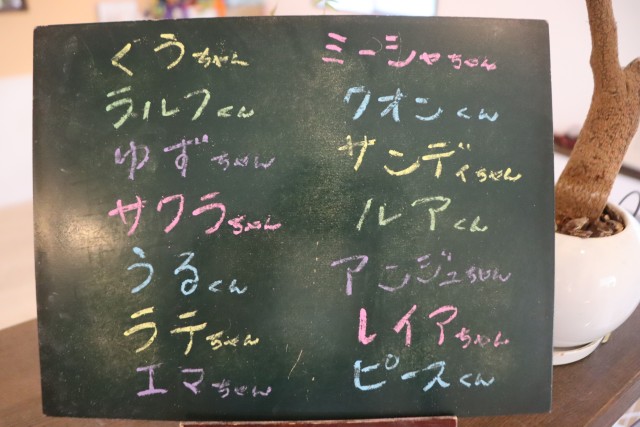 ぐうちゃん
ラルフくん
ゆずちゃん
サクラちゃん
うるくん
ラテちゃん
エマちゃん
ミーシャちゃん
クオンくん
サンディちゃん
ルアくん
アンジュちゃん
レイアちゃん
ピースくん